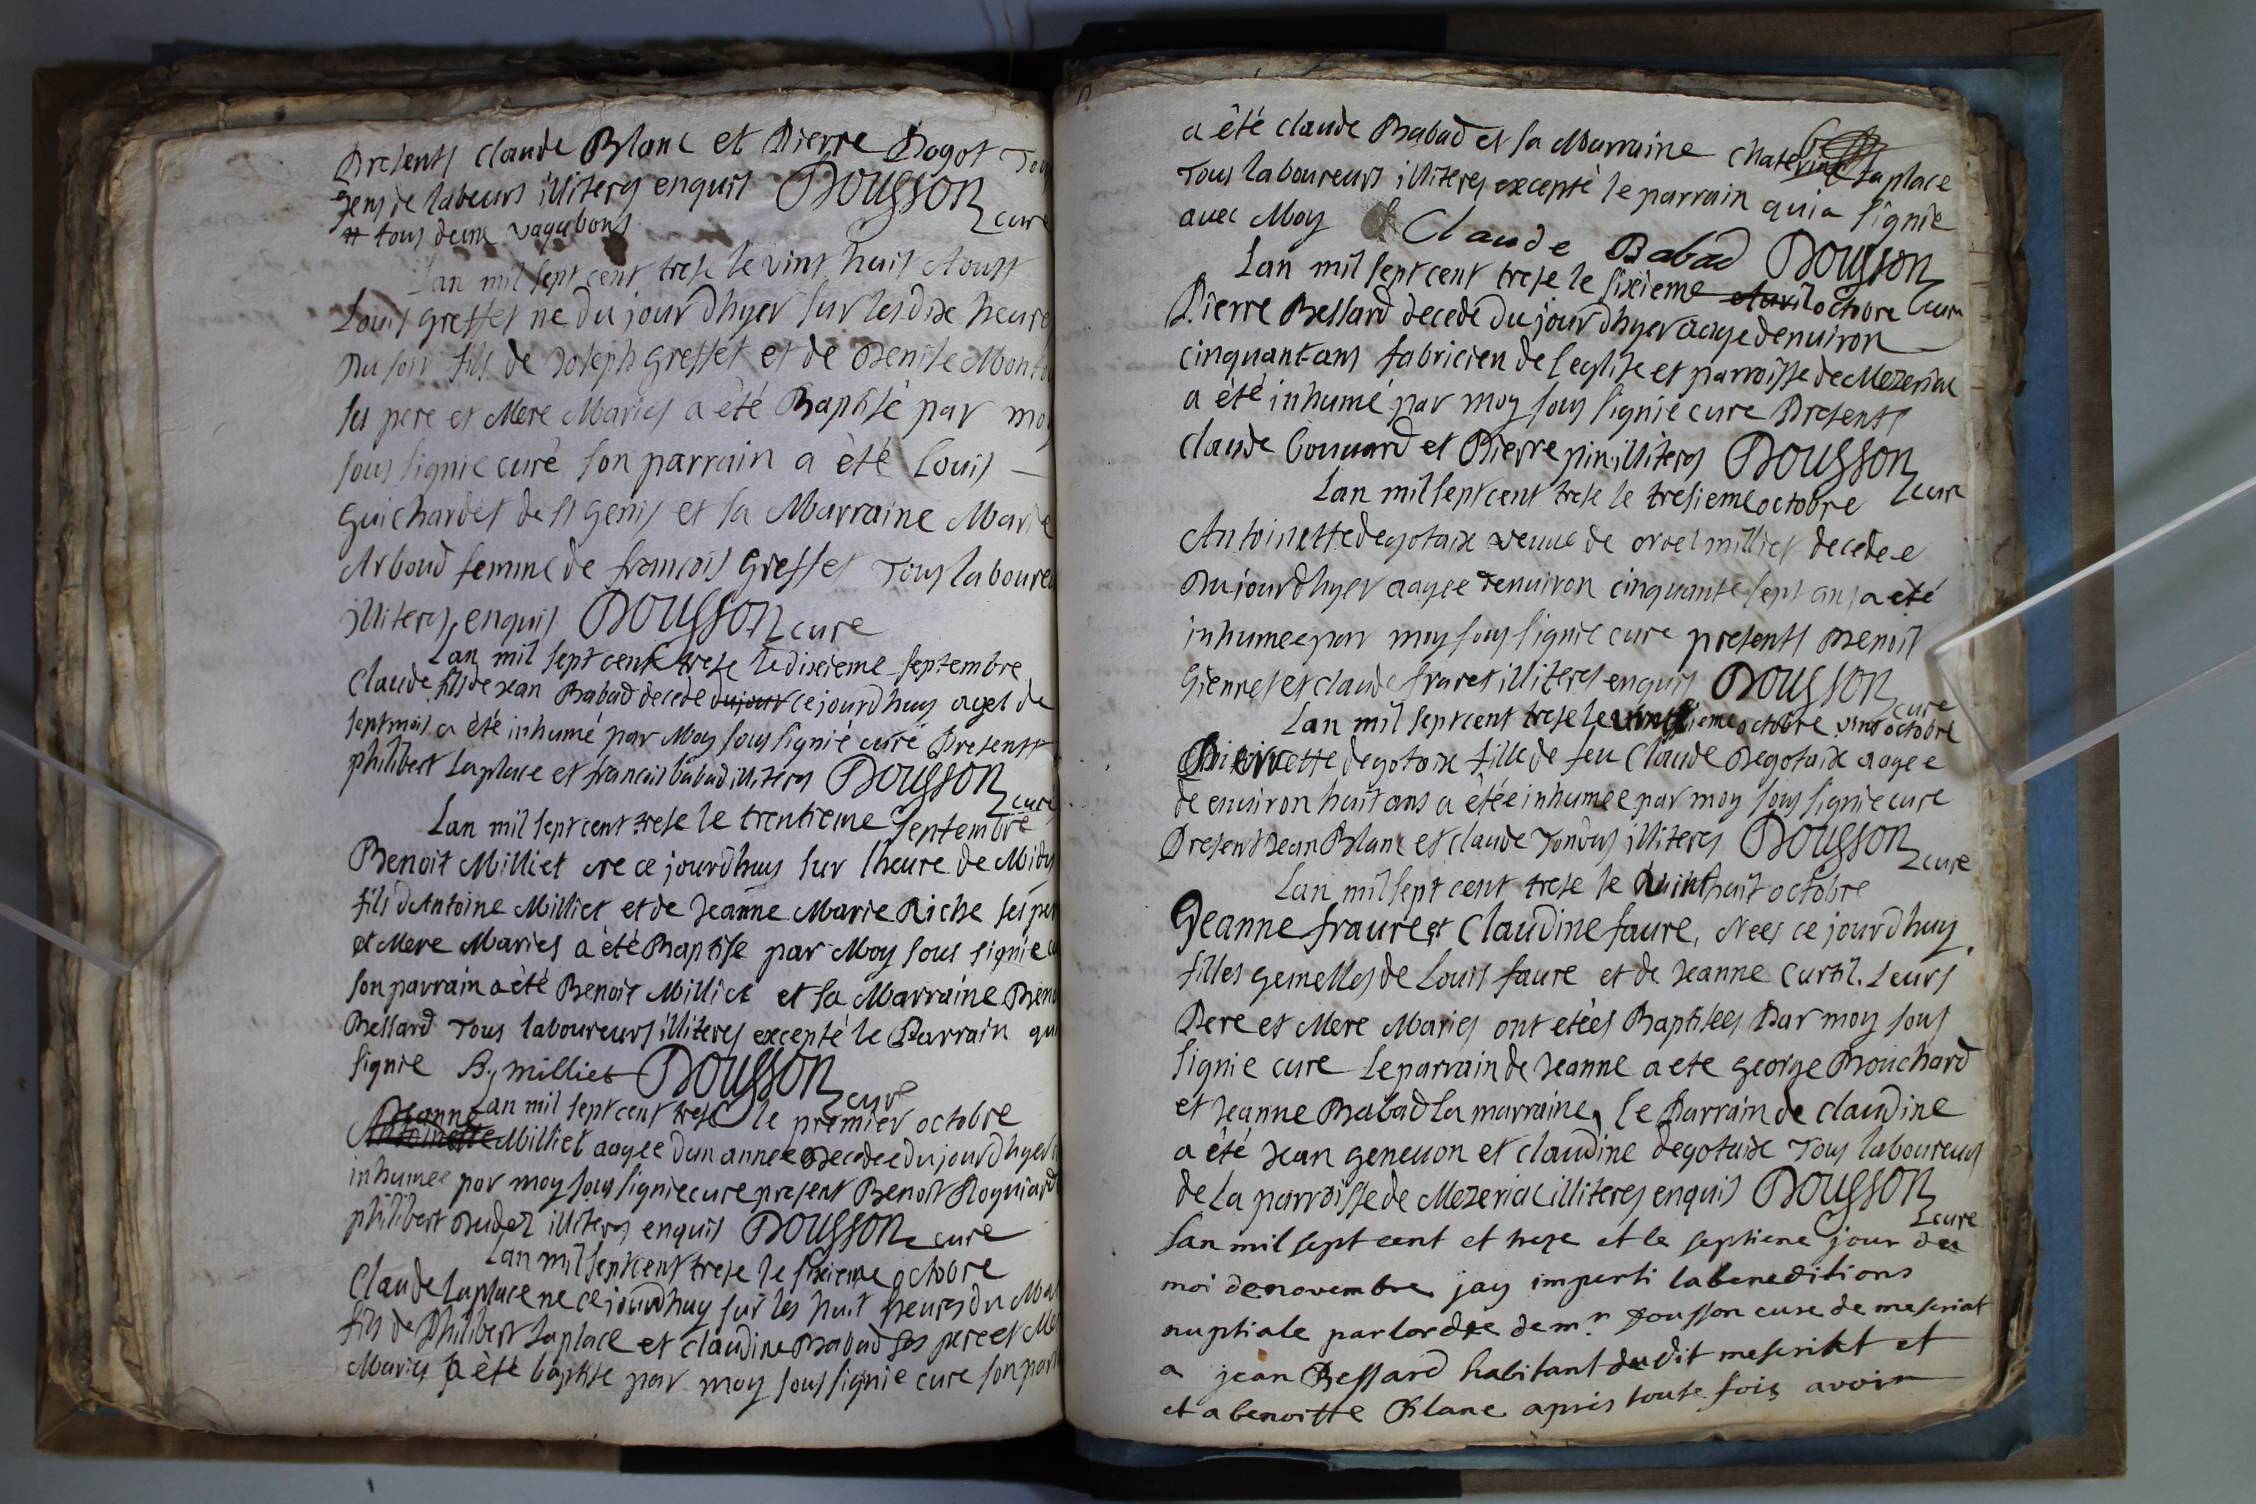 Presents Claude Blanc et Pierre Pogot Tous
gens de labeurs illiteres enquis Dousson cure
# tous deux vagabons
Lan mil sept cent trese le vint huit Aoust
Louis Gresset ne du jour dhyer sur les dix heures
Du soir fils de Joseph Gresset et de Denise
ses pere et Mere Maries a été Baptisé par moy
sous signie curé son parrain a èté Louis —
Guichardet de st genis et sa Marraine Marie
Arboud femme de francois Gresset Tous laboureu
illiteres enquis Dousson cure
Lan mil sept cent trese le dixieme septembre
Claude fils de Jean Babad decede dujour ce jourdhuy agel de
sept mois a èté inhumé par Moy sous signié curé Presents
philibert Laplace et francois babad illiteres Dousson curé
Lan mil sept cent trese le trentieme septembre
Benoit Milliet ne ce jourdhuy sur lheure de Midy
fils dAntoine Milliet et de Jeanne Marie Riche ses per
et Mere Maries a èté Baptise par Moy sous signie c
son parrain a èté Benoit Milliet et sa Marraine Beno
Bessard Tous laboureurs illiteres excepté le Parrain qui
signie B. milliet Dousson curé
Lan mil sept cent trese le premier octobre
Jeanne
Antoinette Milliet aagee dun annee Decedee du jour dhyer
inhumee par moy sous signie cure present Benoit Roguiard
philibert illiteres enquis Dousson cure
Lan mil sept cent trese le sixieme octobre
Claude Laplace ne ce jourdhuy sur les huit heures du Mat
fils de Philibert Laplace et claudine Babad ses pere et Me
Maries a èté baptise par moy sous signie cure son parr
a èté claude Babad et sa Marraine Chaterine Laplace
Tous laboureurs illiteres excepté le parrain qui a signié
avec Moy Claude Babad Dousson cure
Lan mil sept cent trese le sixieme Avril octobre
Pierre Bessard decede du jour dhyer aage denuiron
cinquant ans fabricien de leglise et parroisse de Mezeriac
a èté inhumé par moy sous signié cure Presents
claude Gouuard et Pierre pin illiteres Dousson cure
Lan mil sept cent trese le tresieme octobre
Antoinette degotaix veuue de milliet decedee
Du jour dhyer aagee denuiron cinquante sept ans a été
inhumee par moy sous signie cure presents Benoit
et claude illiteres enquis Dousson cure
Lan mil sept cent trese le vintsieme octobre vint octobre
Pierrette degotaix fille de feu Claude Degotaix aagee
de enuiron huit ans a étée inhumee par moy sous signie cure
Present Jean Blanc et claude Tondus illiteres Dousson cure
Lan mil sept cent trese le vint huit octobre
Jeanne fraure et Claudine faure, Nees ce jourdhuy
filles gemelles de Louis faure et de Jeanne Curtil. Leurs
Pere et Mere Maries ont etées Baptisées Par moy sous
signie cure Le parrain de Jeanne a ete George Bouchard
et Jeanne Babad La marraine, Le Parrain de Claudine
a été Jean geneuon et claudine degotaix Tous laboureurs
de La parroisse de Mezeriac illiteres enquis Dousson cure
Lan mil sept cent et treze et le septiene jour du
moi de novembre jay imparti la beneditions
nuptiale par lordre de mr. Dousson cure de meseriat
a jean Bessard habitant du dit meseriat et
et a benoitte Blanc apres toute fois avoir